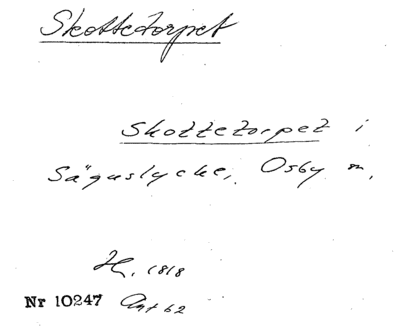 Skottetorpet
Skottetorpet i
Säguslycke, Osby sn,
Hl. 1818
Nr 10247 Ant 62